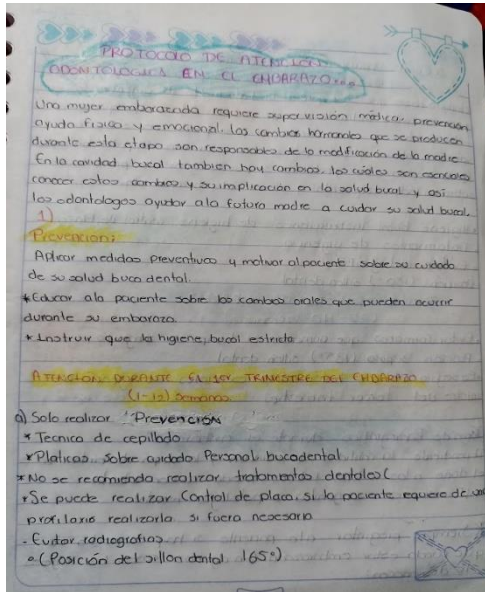 PROTOCOLO DE ATENCION
ODONTOLOGICA EN EL EMBARAZO...
Una mujer embarazada requiere supervisión médica, prevención
ayuda fisica y emocional. los cambios hormonales que se producen
durante esta etapa son responsables de la modificación de la madre
En la cavidad bucal tambien hay cambios. los cuales son esenciales
conocer estos cambios y su implicación en la salud bucal y asi
los odontologos ayudar ala futura madre a cuidar su salud bucal.
1)
Prevencion:
Aplicar medidas preventivas y motivar al paciente sobre su cuidado
de su salud buco dental.
* Educar ala paciente sobre los cambios orales que pueden ocurrir
durante su embarazo.
* Instruir que la higiene bucal estricta
ATENCION DURANTE EL 1er TRIMESTRE DEL EMBARAZO
(1-12) Semanas
a) Solo realizar "Prevención
* Tecnica de cepillado
* Platicas sobre cuidado Personal bucodental
* No se recomienda realizar tratamientos dentales (
* Se puede realizar Control de placa, si la paciente equiere de una
profilaxis realizarla si fuera necesario
- Evitar radiografias
° (Posición del sillon dental 165°)